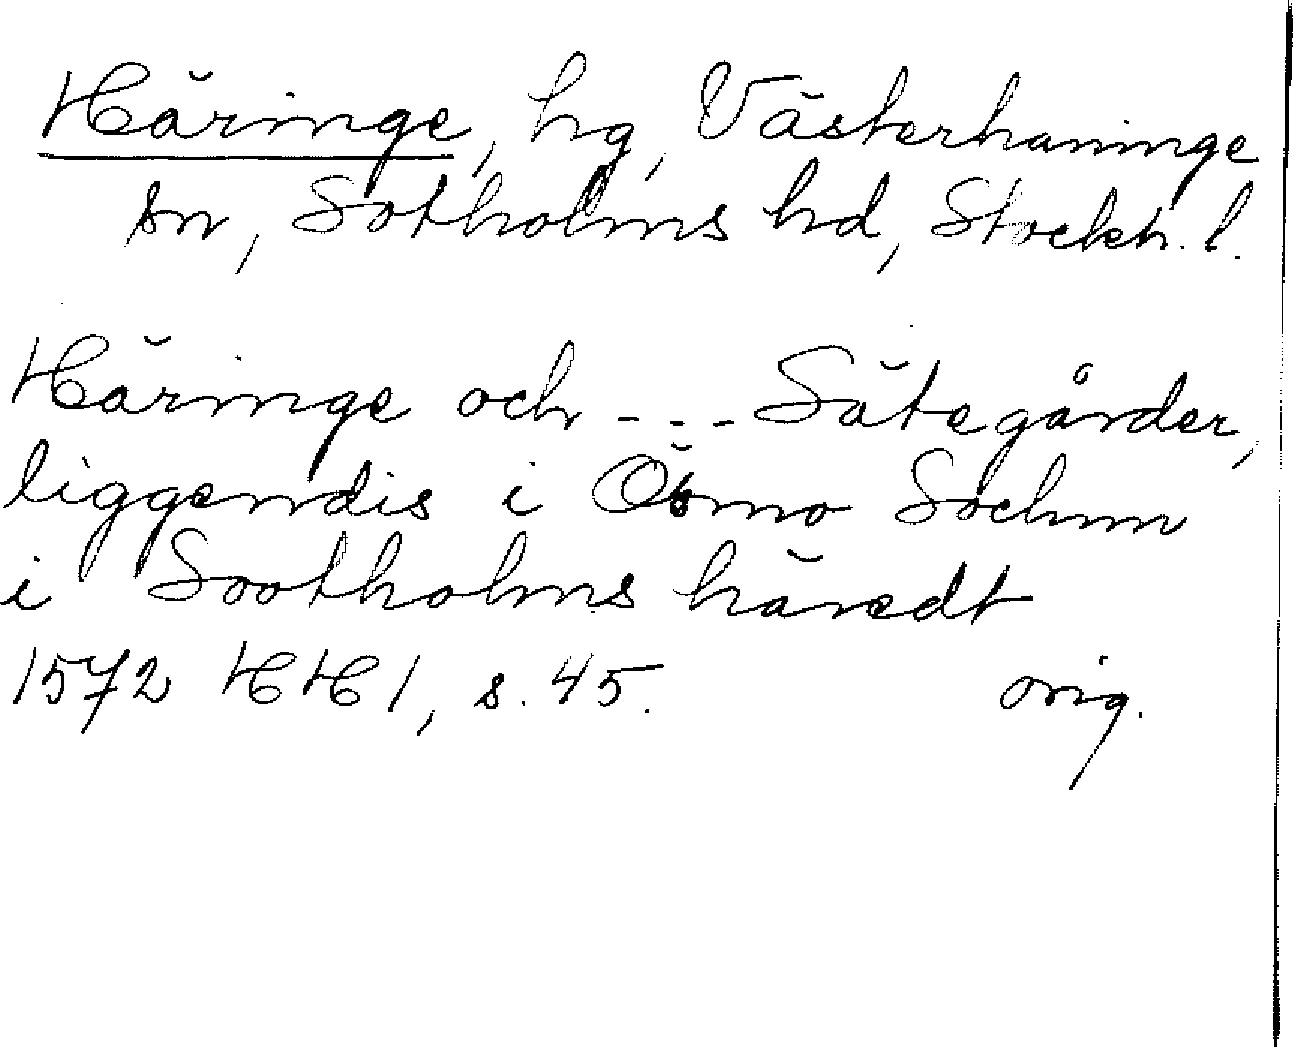 Häringe, hg, Västerhaninge
sn, Sotholms hd, Stockh. l.
Häringe och --- Sätegårder,
liggendis i Ösmo Sochnn
i Sootholms häredt
1572 HH 1, s. 45. orig.